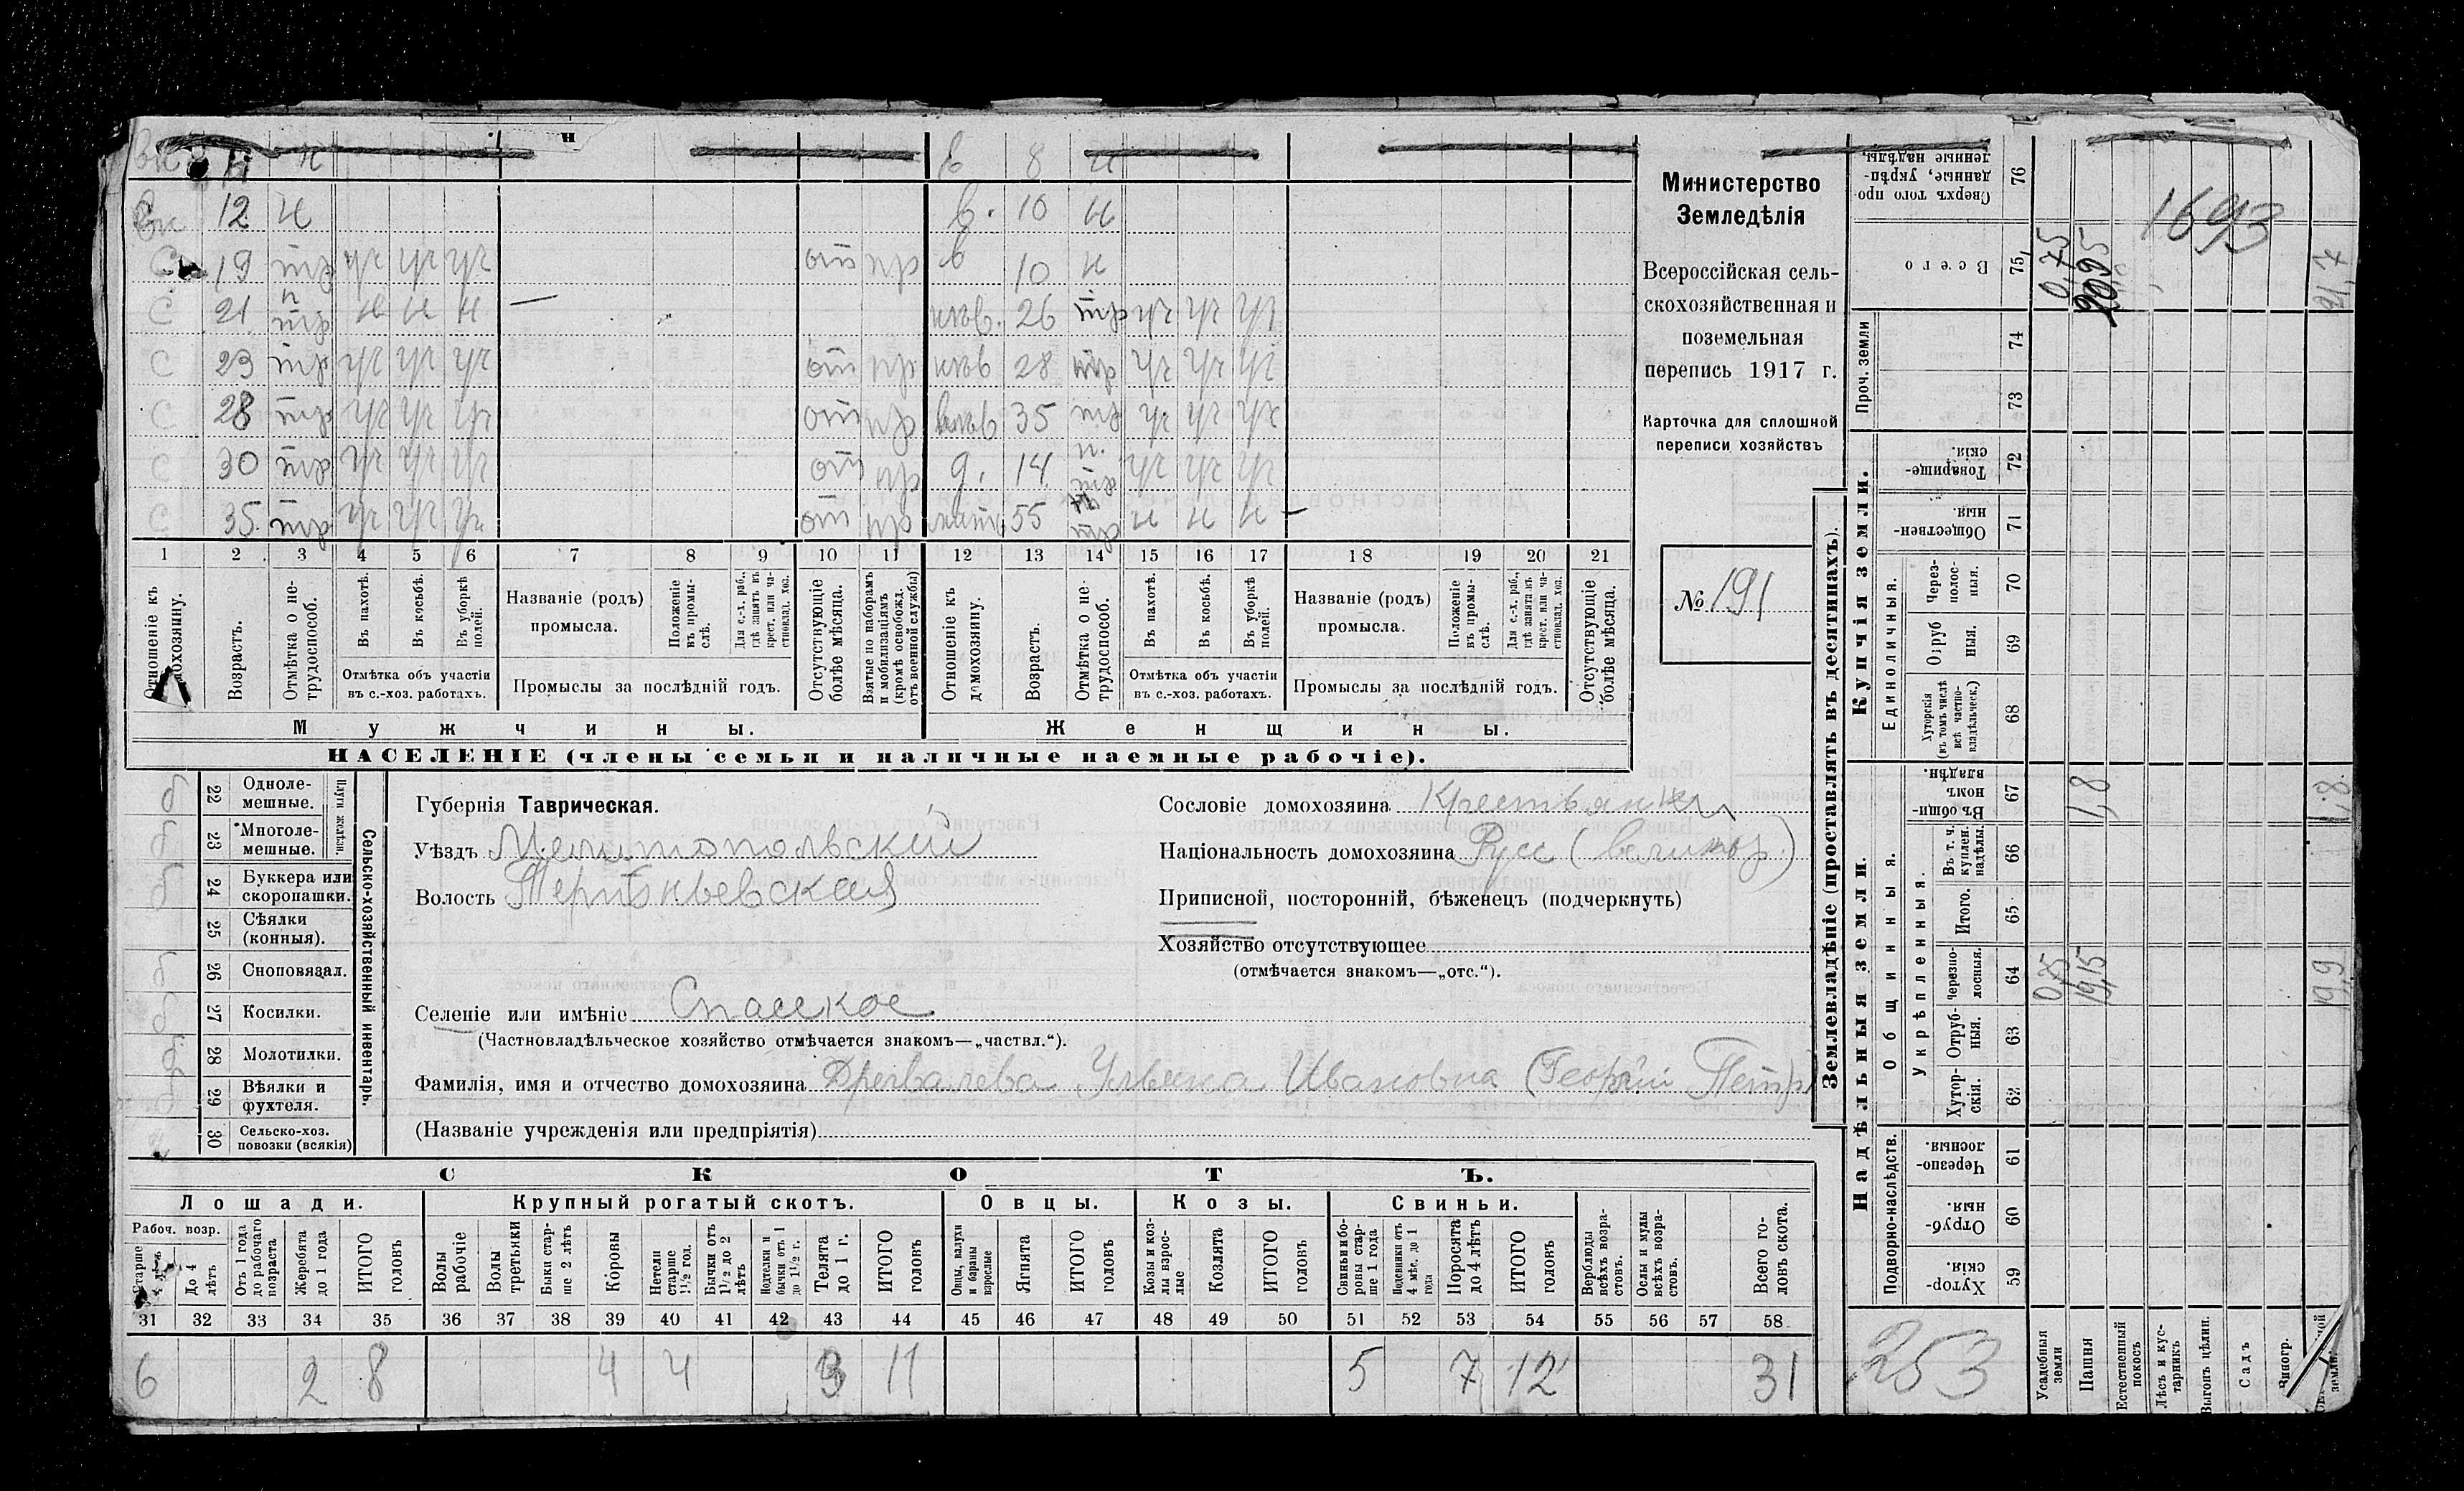 вк н 8 н
вн 12 н в. 10 н
с 19 тр уч уч уч от пр в 10 н
с 21 п тр н н н — нев. 26 тр уч уч уч
с 23 тр уч уч уч от пр нев 28 тр уч уч уч
с 28 тр уч уч уч от пр 35 тр уч уч уч
с 30 тр уч уч уч от пр д. 14 п. тр уч уч уч
с 35 тр уч уч уч от пр мать 55 тр н н н —
1 2 3 4 5 6 7 8 9 10 11 12 13 14 15 16 17 18 19 20 21
Отношеніе къ домохозяину.
Возрастъ.
Отмѣтка о не-
трудоспособ.
Въ пахотѣ.
Въ косьбѣ.
Въ уборкѣ
полей.
Отмѣтка объ участіи
въ с.-хоз. работахъ.
Названіе (родъ)
промысла.
Положеніе
въ промы-
слѣ.
Для с.-х. раб.,
гдѣ занятъ въ
крест. или ча-
стновлад. хоз.
Промыслы за послѣдній годъ.
Отсутствующіе
болѣе мѣсяца.
Взятые по наборамъ
и мобилизаціямъ
(кромѣ освобожд.
отъ военной службы)
Отношеніе къ
домохозяину.
Возрастъ.
Отмѣтка о не-
трудоспособ.
Въ пахотѣ.
Въ косьбѣ.
Въ уборкѣ
полей.
Отмѣтка объ участіи
въ с.-хоз. работахъ.
Названіе (родъ)
промысла.
Положеніе
въ промы-
слѣ.
Для с.-х. раб.,
гдѣ занята въ
крест. или ча-
стновлад. хоз.
Промыслы за послѣдній годъ.
Отсутствующіе
болѣе мѣсяца.
Мужчины. Женщины.
НАСЕЛЕНІЕ (члены семьи и наличные наемные рабочіе).
Министерство
Земледѣлія
Всероссійская сель-
скохозяйственная и
поземельная
перепись 1917 г.
Карточка для сплошной
переписи хозяйствъ
№ 191
б 22 Одноле-
мешные.
б 23 Многоле-
мешные.
Плуги желѣзн.
б 24 Буккера или
скоропашки.
25 Сѣялки
(конныя).
б 26 Сноповязал.
б 27 Косилки.
б 28 Молотилки.
б 29 Вѣялки и
фухтеля.
2 30 Сельско-хоз.
повозки (всякія)
Сельско-хозяйственный инвентарь.
Губернія Таврическая.
Уѣздъ Мелитопольскій
Волость Терпѣньевская
Селеніе или имѣніе Спасское
(Частновладѣльческое хозяйство отмѣчается знакомъ—„частвл.“).
Фамилія, имя и отчество домохозяина Дрегвалева Ульяна Ивановна (Георгій Петр)
(Названіе учрежденія или предпріятія)
Сословіе домохозяина Крестьян
Національность домохозяина Русс (великор.)
Приписной, посторонній, бѣженецъ (подчеркнуть)
Хозяйство отсутствующее
(отмѣчается знакомъ—„отс.“).
СКОТЪ.
Лошади. Крупный рогатый скотъ. Овцы. Козы. Свиньи.
Рабоч. возр.
Старше 4 лѣтъ
До 4
лѣтъ
Отъ 1 года
до рабочаго
возраста
Жеребята
до 1 года
ИТОГО
головъ
Волы
рабочіе
Волы
третьяки
Быки стар-
ше 2 лѣтъ
Коровы
Нетели
старше
1½ год.
Бычки отъ
1½ до 2
лѣтъ
Подтелки и
бычки отъ 1
до 1½ г.
Телята
до 1 г.
ИТОГО
головъ
Овцы, валухи
и бараны
взрослые
Ягнята
ИТОГО
головъ
Козы и коз-
лы взрос-
лые
Козлята
ИТОГО
головъ
Свиньи и бо-
ровы стар-
ше 1 года
Подсвинки отъ
4 мѣс. до 1
года
Поросята
до 4 лѣтъ
ИТОГО
головъ
Верблюды
всѣхъ возра-
стовъ.
Ослы и мулы
всѣхъ возра-
стовъ.
Всего го-
ловъ скота.
31 32 33 34 35 36 37 38 39 40 41 42 43 44 45 46 47 48 49 50 51 52 53 54 55 56 57 58
6 2 8 4 4 3 11 5 7 12 31
Землевладѣніе (проставлять въ десятинахъ).
Надѣльныя земли. Купчія земли.
Подворно-наслѣдств.
Общинныя.
Укрѣпленныя.
Единоличныя.
Проч. земли
Хутор-
скія. 59
Отруб-
ныя. 60
Черезпо-
лосныя. 61
Хутор-
скія. 62
Отруб-
ныя. 63
Черезпо-
лосныя. 64 0,75 19,15 19,9
Итого. 65
Въ т. ч.
куплен.
надѣлы. 66
Въ общин-
номъ
владѣн. 67 1,8 1,8
Хуторскія
(въ томъ числѣ
всѣ частно-
владѣльческ.) 68
Отруб
ныя. 69
Через-
полос-
ныя. 70
Обществен-
ныя. 71
Товарище-
скія. 72
73
74
Всего 75 0,75 20,95 21,7
Сверхъ того про
данные, укрѣп-
ленные надѣлы. 76
1693
253
Усадебныя
земли
Пашня
Естественный
покосъ
Лѣсъ и кус-
тарникъ
Выгонъ цѣлин.
Садъ
Виногр.
земли